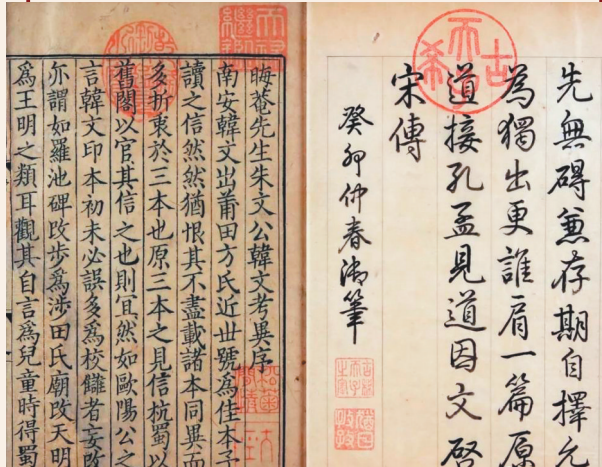 先無碍兼存期自擇允
為獨出更誰肩一篇原
道接孔孟見道因文啓
宋傳
癸卯仲春御筆
古希天子
晦菴先生朱文公韓文考異序
南安韓文出莆田方氏近世號爲佳本予
讀之信然然猶恨其不盡載諸本同異而
多折衷於三本也原三本之見信杭蜀以
舊閣以官其信之也則宜然如歐陽公之
言韓文印本初未必誤多爲校讎者妄改
亦謂如羅池碑改步爲涉田氏廟改天明
爲王明之類耳觀其自言爲兒童時得蜀